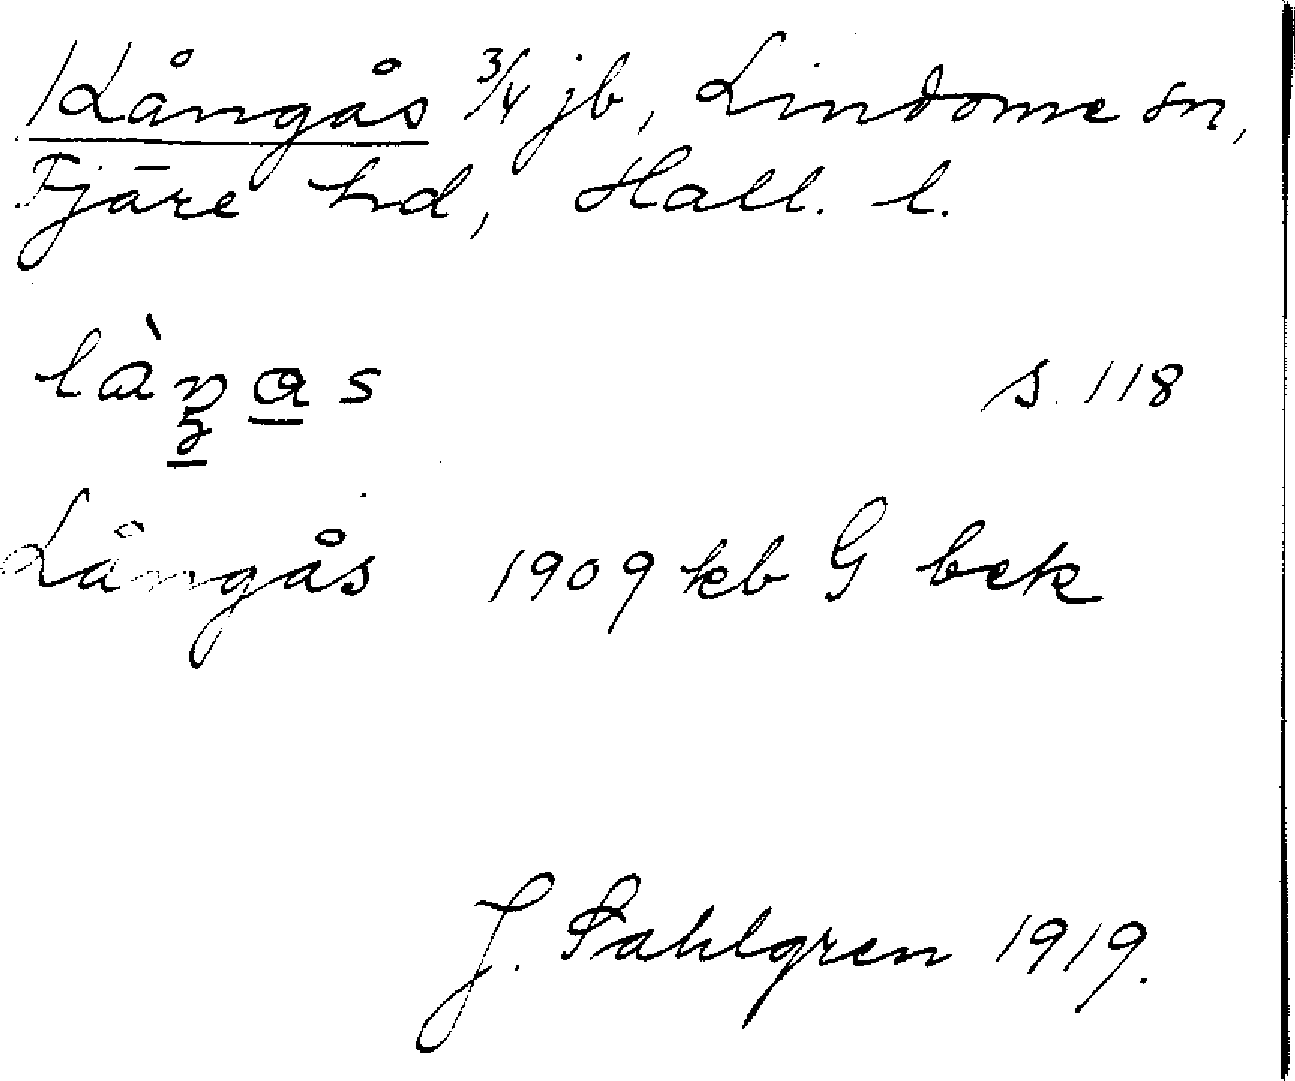 /Långås 3/4 jb, Lindome sn,
Fjäre hd, Hall. l.
s. 118
Långås 1909 kb G bek
J. Sahlgren 1919.